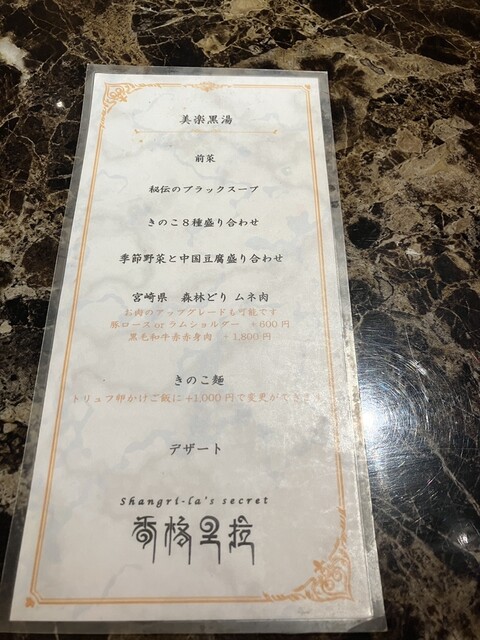 美楽黒湯
前菜
秘伝のブラックスープ
きのこ8種盛り合わせ
季節野菜と中国豆腐盛り合わせ
宮崎県　森林どり ムネ肉
お肉のアップグレードも可能です
豚ロース or ラムショルダー　+600円
黒毛和牛赤赤身肉　+1,800円
きのこ麺
トリュフ卵かけご飯に+1,000円で変更ができます
デザート
Shangri-la's secret
香格里拉